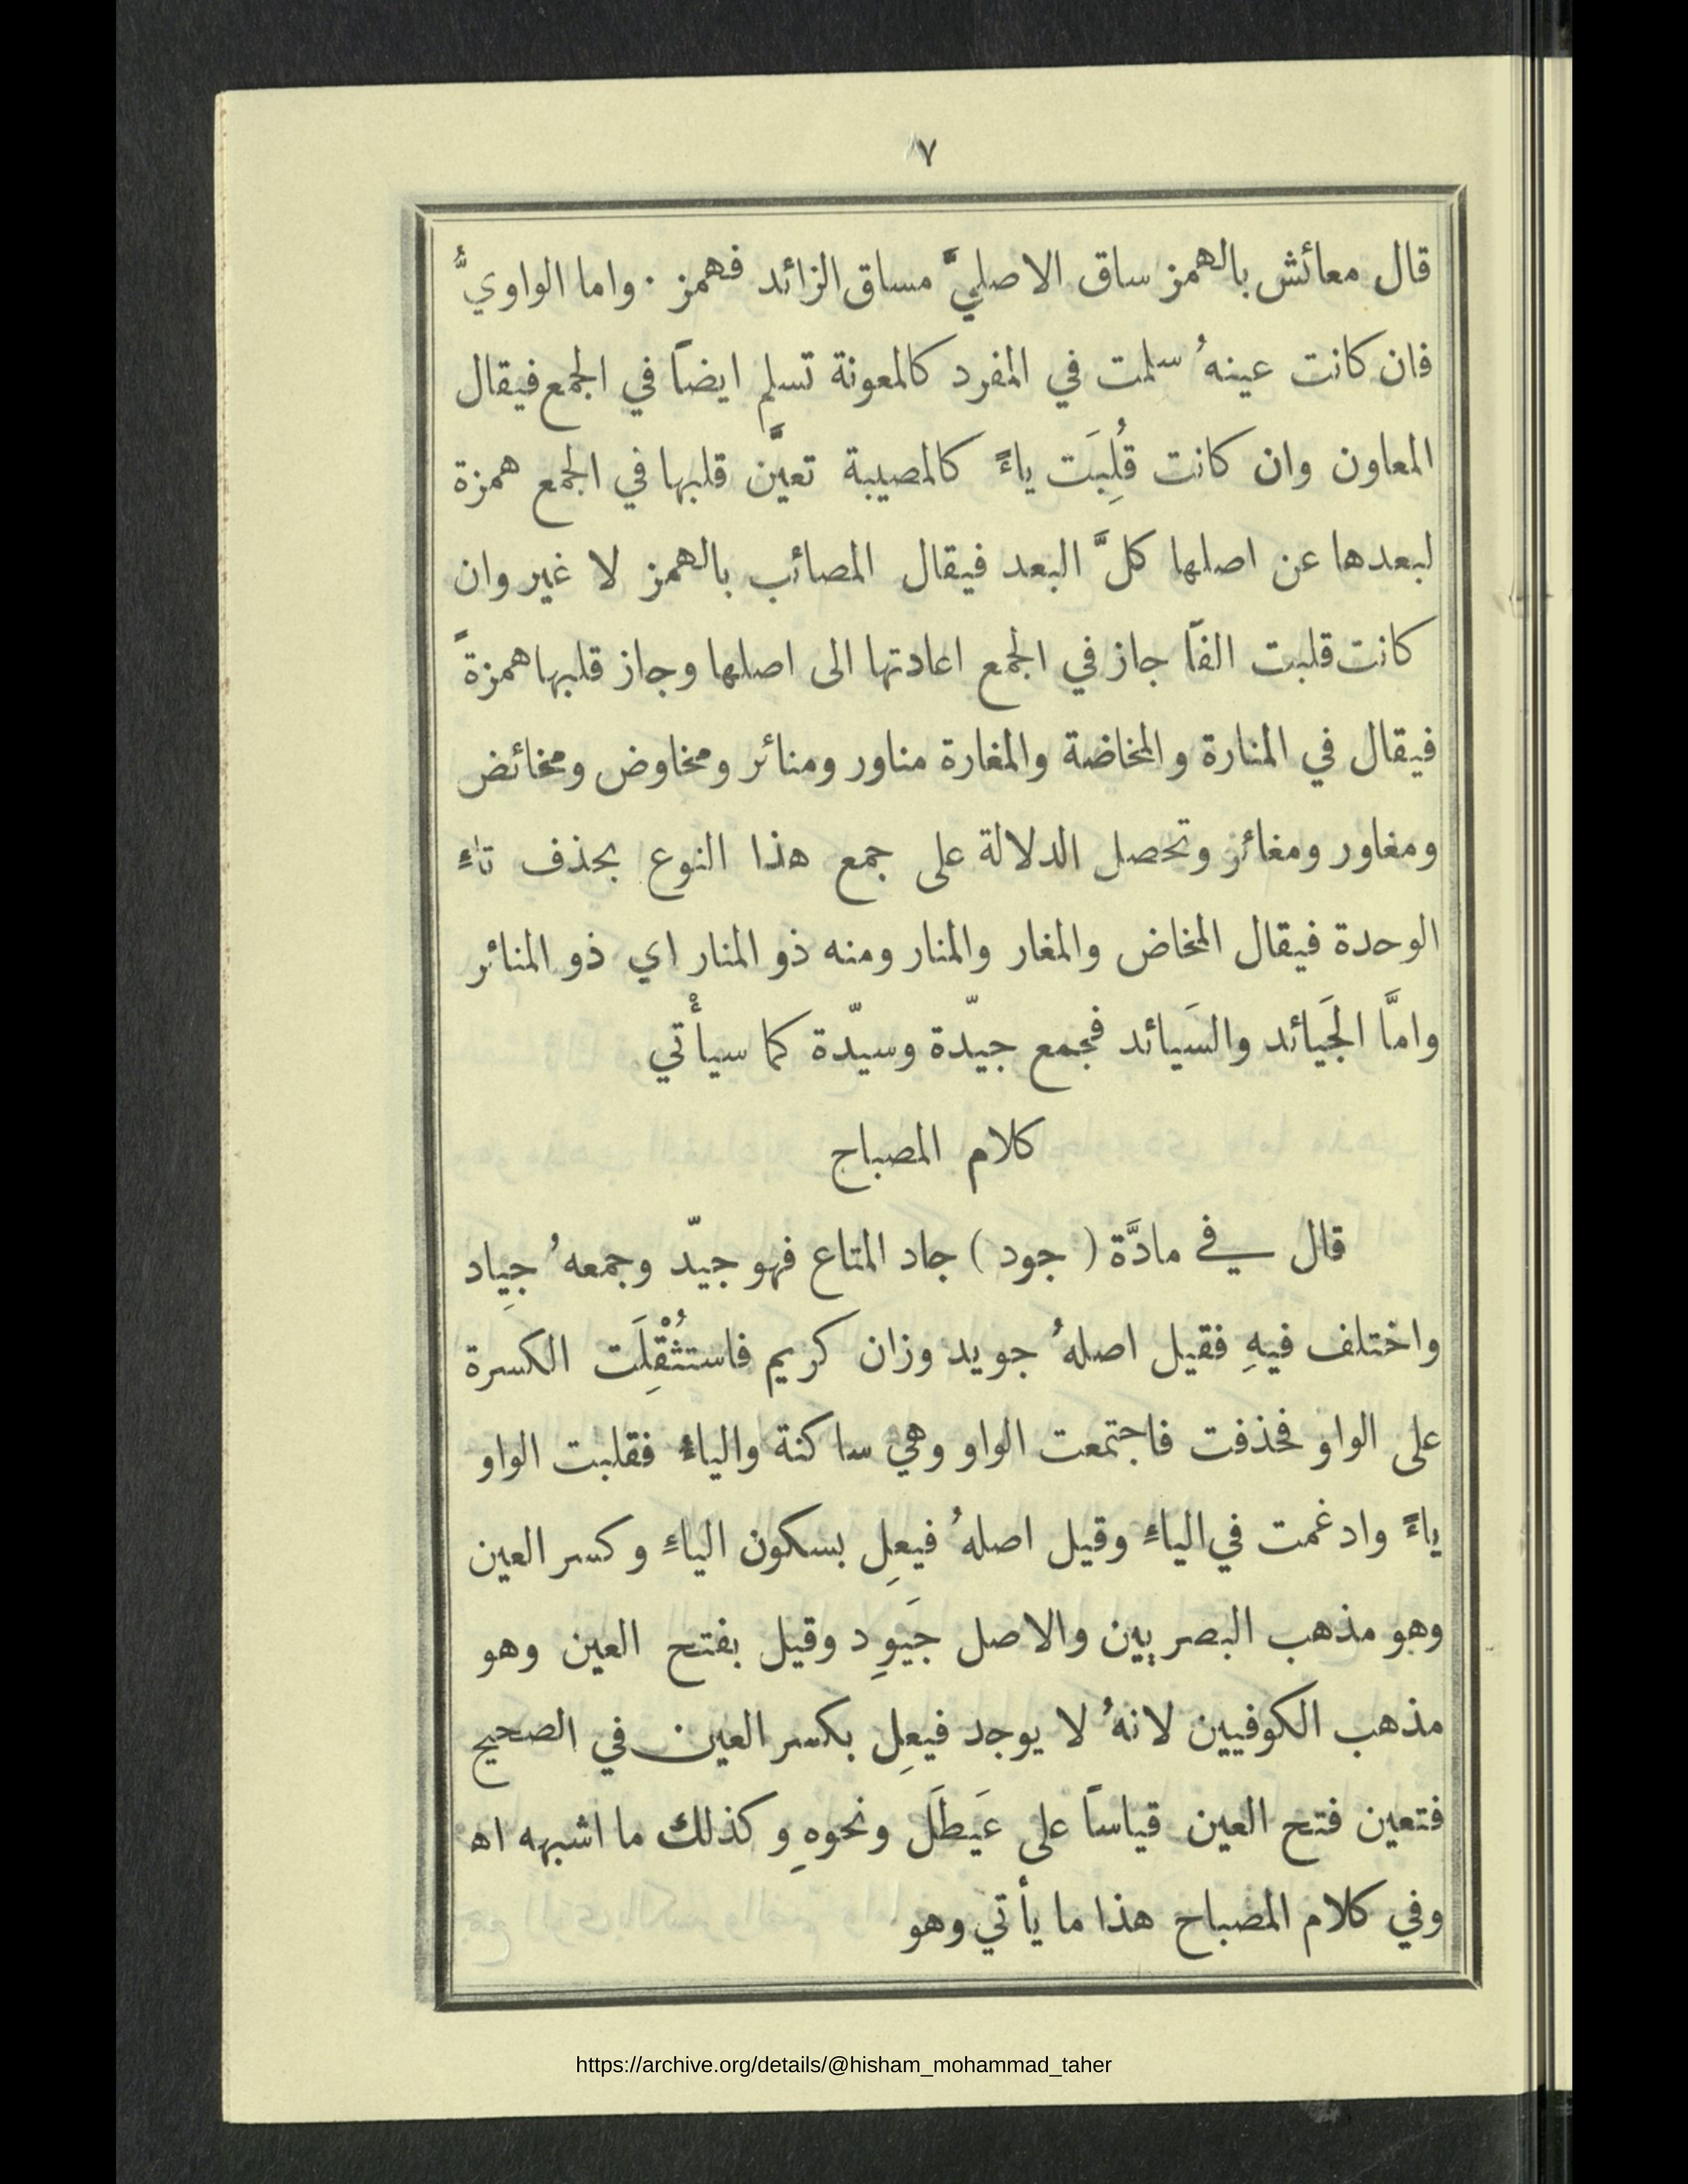 ٧
قال معائش بالهمز ساق الاصليَّ مساق الزائد فهمز . واما الواويُّ
فان كانت عينهُ سلمت في المفرد كالمعونة تسلم ايضاً في الجمع فيقال
المعاون وان كانت قُلِبَت ياءً كالمصيبة تعيَّن قلبها في الجمع همزة
لبعدها عن اصلها كلَّ البعد فيقال المصائب بالهمز لا غير وان
كانت قلبت الفاً جاز في الجمع اعادتها الى اصلها وجاز قلبها همزةً
فيقال في المنارة والمخاضة والمغارة مناور ومنائر ومخاوض ومخائض
ومغاور ومغائر وتحصل الدلالة على جمع هذا النوع بحذف تاءِ
الوحدة فيقال المخاض والمغار والمنار ومنه ذو المنار اي ذو المنائر
وامَّا الجَيائد والسَيائد فجمع جيّدة وسيّدة كما سيأْتي
كلام المصباح
قال في مادَّة ( جود ) جاد المتاع فهو جيّد وجمعهُ جِياد
واختلف فيهِ فقيل اصلهُ جويد وزان كريم فاستثُقْلِلَت الكسرة
على الواو فحذفت فاجتمعت الواو وهي ساكنة والياءُ فقلبت الواو
ياءً وادغمت في الياءِ وقيل اصلهُ فيعِل بسكون الياءِ وكسر العين
وهو مذهب البصريين والاصل جَيوِد وقيل بفتح العين وهو
مذهب الكوفيين لانهُ لا يوجد فيعِل بكسر العين في الصحيح
فتعين فتح العين قياساً على عَيطَل ونحوهِ وكذلك ما اشبهه اه
وفي كلام المصباح هذا ما يأتي وهو
https://archive.org/details/@hisham_mohammad_taher